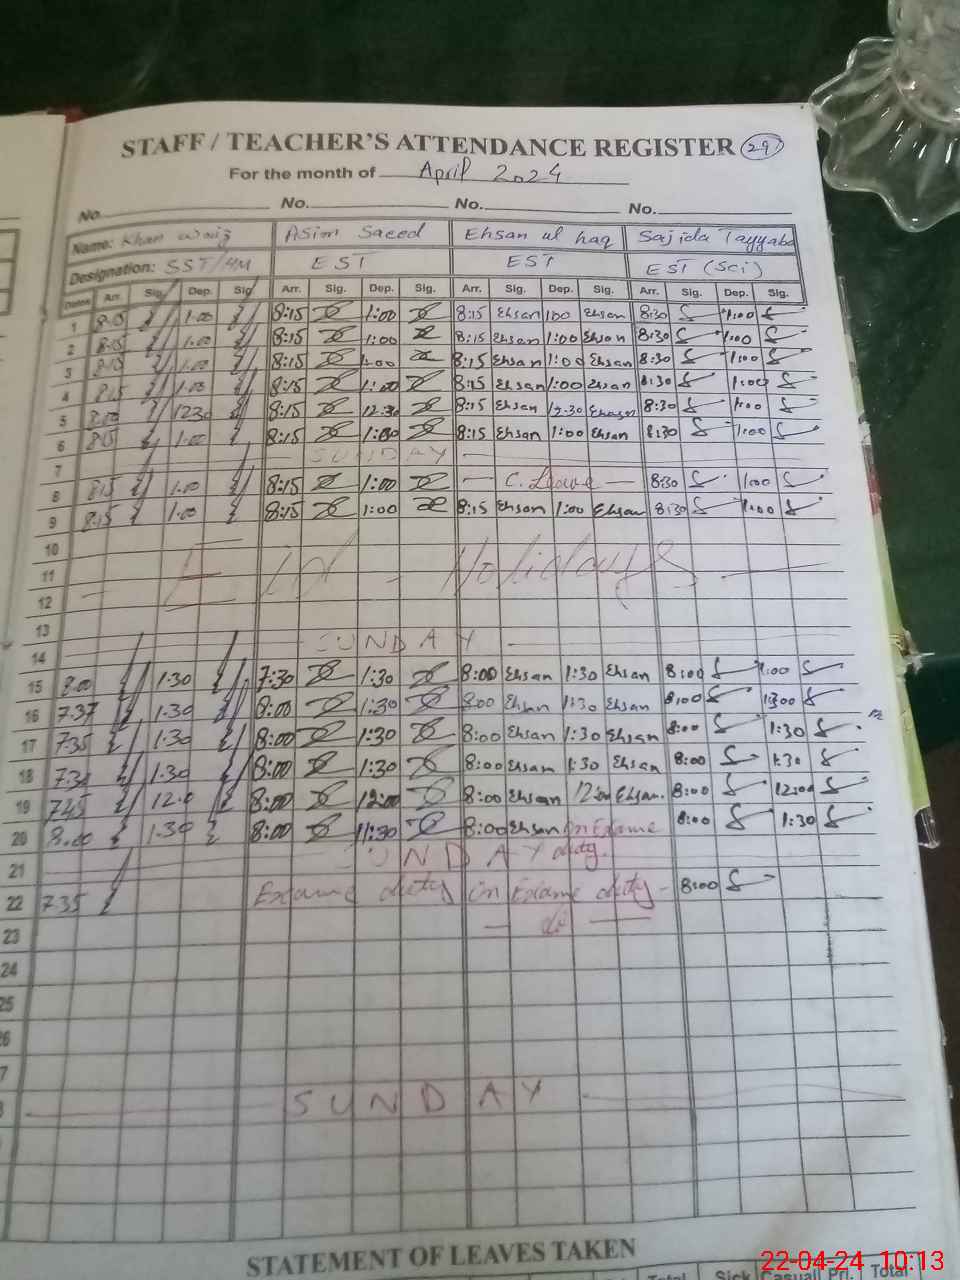 STAFF / TEACHER'S ATTENDANCE REGISTER 29
For the month of April 2024
No. No. No. No.
Name: Khan Asim Saeed Ehsan ul haq Sajida Tayyaba
Designation: SST/HM EST EST EST (Sci)
Dates Arr. Sig. Dep. Sig. Arr. Sig. Dep. Sig. Arr. Sig. Dep. Sig. Arr. Sig. Dep. Sig.
1 8:15 1:00 8:15 1:00 8:15 Ehsan 1:00 Ehsan 8:30 1:00
2 8:15 1:00 8:15 1:00 8:15 Ehsan 1:00 Ehsan 8:30 1:00
3 8:15 1:00 8:15 1:00 8:15 Ehsan 1:00 Ehsan 8:30 1:00
4 8:15 1:00 8:15 1:00 8:15 Ehsan 1:00 Ehsan 8:30 1:00
5 8:00 12:30 8:15 12:30 8:15 Ehsan 12:30 Ehsan 8:30 1:00
6 8:15 1:00 8:15 1:00 8:15 Ehsan 1:00 Ehsan 8:30 1:00
7 SUNDAY
8 8:15 1:00 8:15 1:00 C. Leave 8:30 1:00
9 8:15 1:00 8:15 1:00 8:15 Ehsan 1:00 Ehsan 8:30 1:00
10
11 Eid - Holidays
12
13
14 SUNDAY
15 8:00 1:30 7:30 1:30 8:00 Ehsan 1:30 Ehsan 8:00 1:00
16 7:37 1:30 8:00 1:30 8:00 Ehsan 1:30 Ehsan 8:00
17 7:35 1:30 8:00 1:30 8:00 Ehsan 1:30 Ehsan 8:00 1:30
18 7:34 1:30 8:00 1:30 8:00 Ehsan 1:30 Ehsan 8:00 1:30
19 7:45 12.0 8:00 12:00 8:00 Ehsan 12:00 Ehsan. 8:00 12:00
20 8:00 1:30 8:00 11:30 8:00 Ehsan in Exame 8:00 1:30
21 SUNDAY duty.
22 7:35 Exame duty in Exame duty - 8:00
23 do
24
25
26
27
SUNDAY
STATEMENT OF LEAVES TAKEN
Total Sick Casual Pri. Total
22-04-24 10:13